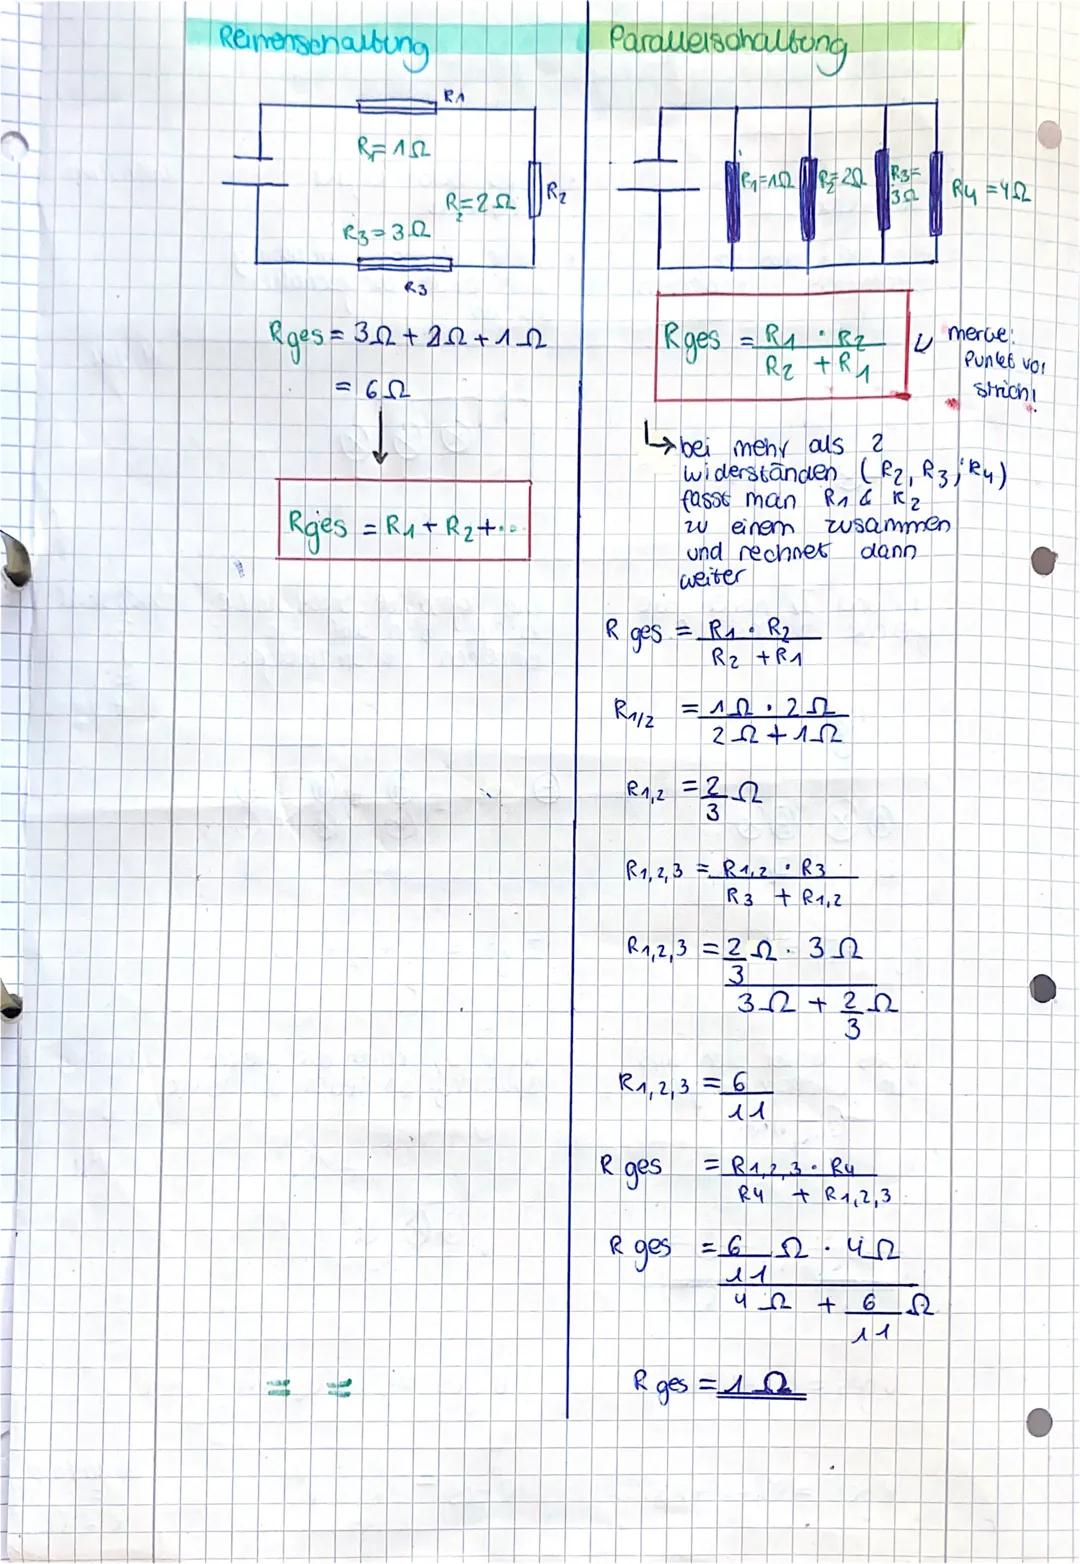 Reihenschaltung
R1
R1=1Ω
R2=2Ω
R2
R3=3Ω
R3
Rges = 3Ω + 2Ω + 1Ω
= 6Ω
Rges = R1 + R2 + ...
= =
Parallelschaltung
R1=1Ω R2=2Ω R3=3Ω R4=4Ω
Rges = R1 · R2
R2 + R1
merke:
Punkt vor
strich!
↳ bei mehr als 2
widerständen (R2, R3, R4)
fasst man R1 & R2
zu einem zusammen
und rechnet dann
weiter
R ges = R1 · R2
R2 + R1
R1/2 = 1Ω · 2Ω
2Ω + 1Ω
R1,2 = 2/3 Ω
R1,2,3 = R1,2 · R3
R3 + R1,2
R1,2,3 = 2/3 Ω · 3Ω
3Ω + 2/3 Ω
R1,2,3 = 6/11
R ges = R1,2,3 · R4
R4 + R1,2,3
R ges = 6/11 Ω · 4Ω
4Ω + 6/11 Ω
R ges = 1Ω